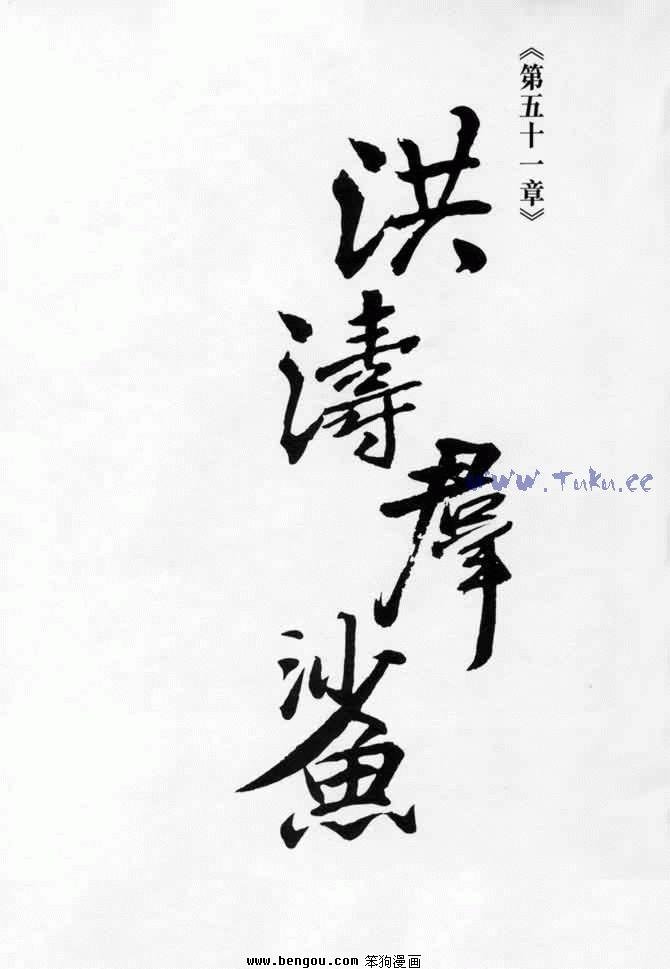 《第五十一章》
洪濤羣鯊
www.Tuku.cc
www.bengou.com 笨狗漫画